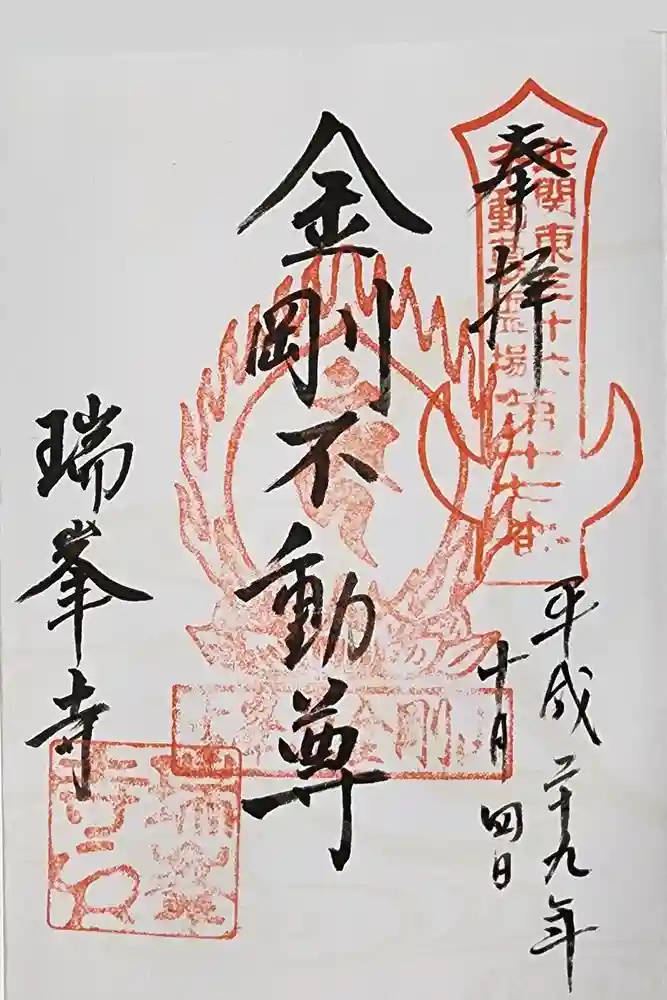 奉拝
北関東三十六
不動尊霊場
第廿七番
平成二十九年
十月四日
金剛不動尊
瑞峯寺